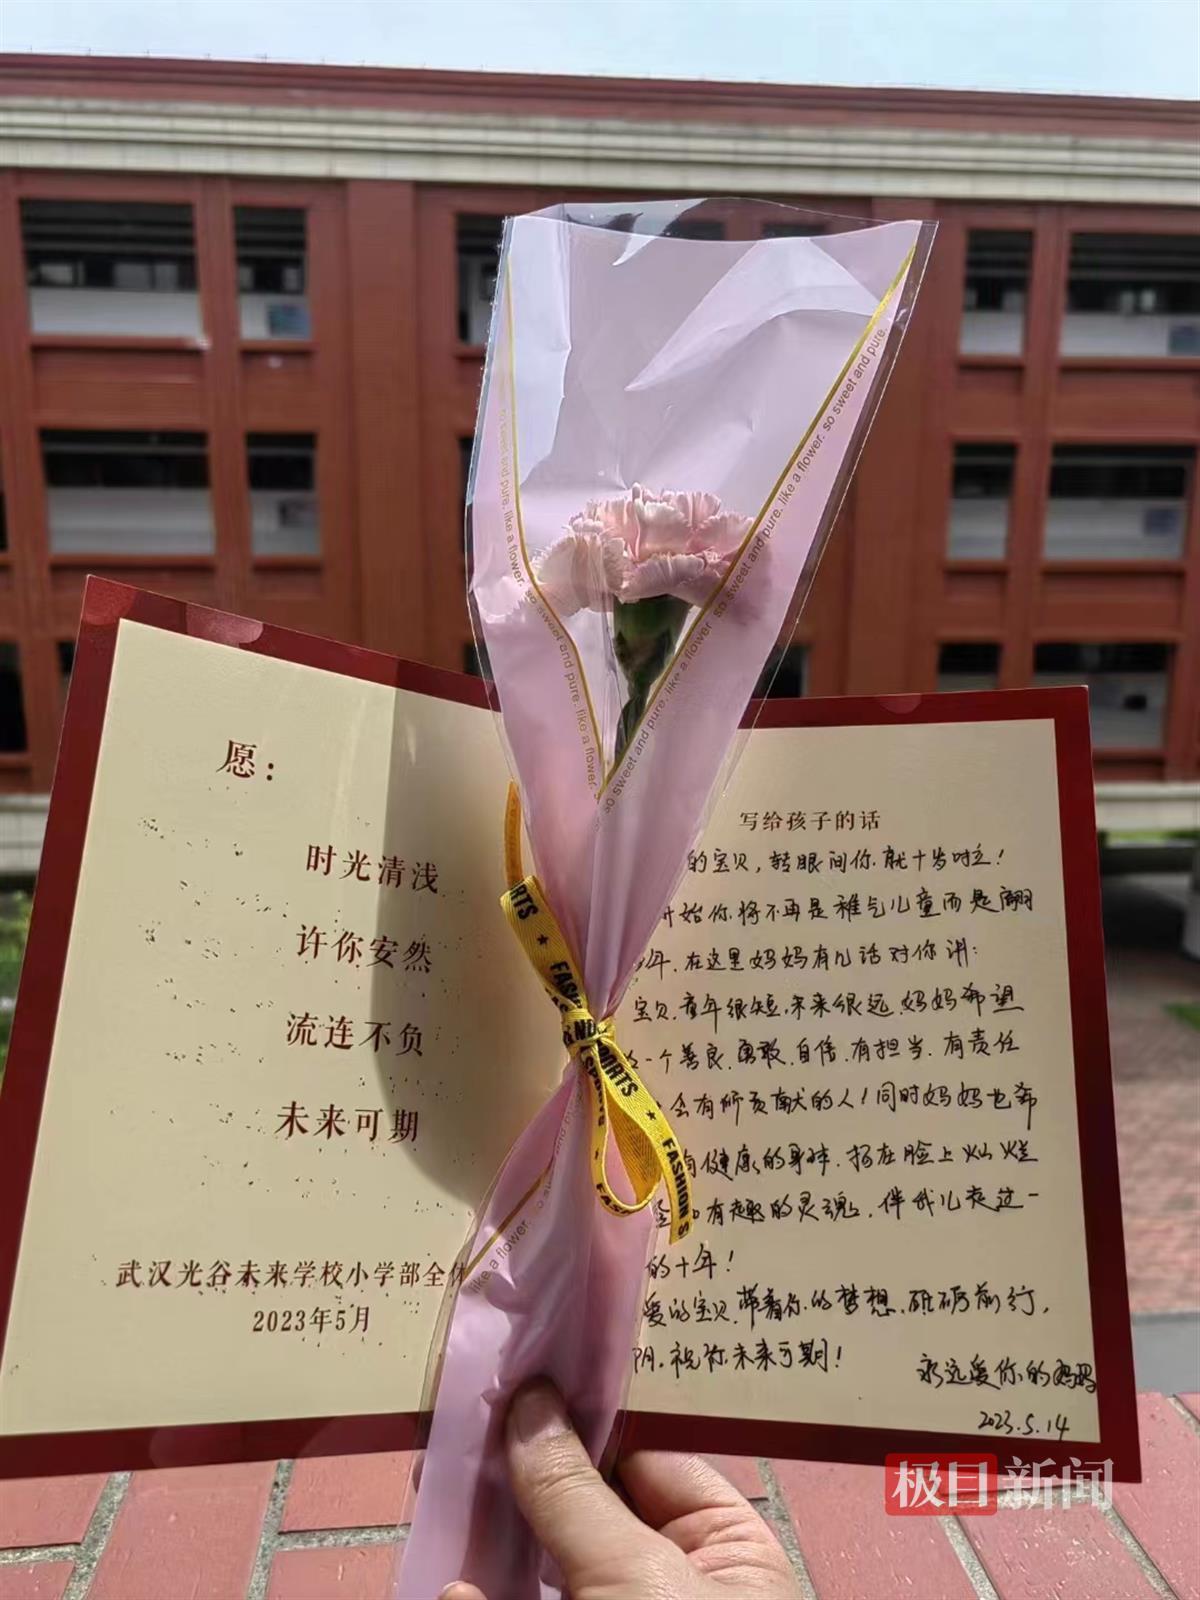 愿：
时光清浅
许你安然
流连不负
未来可期
武汉光谷未来学校小学部全体
2023年5月
so sweet and pure. like a flower. so sweet and pure. like a flower. so sweet and pure.
and pure. like a flower. so sweet and pure. like a flower.
like a flower.
FASHION S
写给孩子的话
的宝贝，转眼间你就十岁啦！
开始你将不再是稚气儿童而是翩
年．在这里妈妈有几话对你讲：
宝贝，童年很短，未来很远，妈妈希望
一个善良．勇敢．自信．有担当．有责任
会有所贡献的人！同时妈妈也希
有健康的身体．扬在脸上灿烂
有趣的灵魂．伴我儿走过一
的十年！
爱的宝贝，带着你的梦想，砥砺前行，
阴．祝你未来可期！
永远爱你的妈妈
2023.5.14
极目新闻